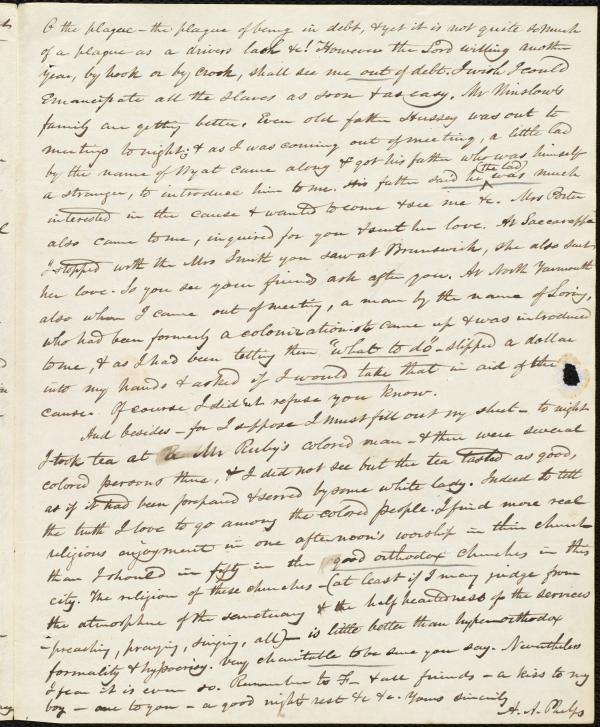 O the plague - the plague of being in debt, & yet it is not quite so much
of a plague as a drivers lash &c! However the Lord willing another
year, by hook or by crook, shall see me out of debt. I wish I could
Emancipate all the slaves as soon & as easy. Mr Winslow's
family are getting better. Even old father Hussey was out to
meeting to night; & as I was coming out of meeting, a little lad
by the name of Wyat came along & got his father who was himself
a stranger, to introduce him to me. His father said he (the lad) was much
interested in the cause & wanted to come & see me &c. Mrs Porter
also came to me, inquired for you & sent her love. At Saccarappa
I stopped with the Mrs Smith you saw at Brunswick, she also sent
her love. So you see your friends ask after you. At North Yarmouth
also when I came out of meeting, a man by the name of Loring,
who had been formerly a colonizationist came up & was introduced
to me, & as I had been telling them "what to do" - slipped a dollar
into my hands & asked if I would take that in aid of the
cause. Of course I did'nt refuse you know.
And besides - for I suppose I must fill out my sheet - to night
I took tea at a Mr Ruby's colored man - & there were several
colored persons there, & I did not see but the tea tasted as good,
as if it had been prepared & served by some white lady. Indeed to tell
the truth I love to go among the colored people. I find more real
religious enjoyment in one afternoon's worship in their church
than I should in fifty in the good orthodox churches in this
city. The religion of these churches - (at least if I may judge from
the atmosphere of the sanctuary & the half heartedness of the services
- preaching, praying, singing, all) - is little better than hyper-orthodox
formality & hypocrisy. Very charitable to be sure you say. Nevertheless
I fear it is even so. Remember to F- & all friends - a kiss to my
boy - one to you - a good night rest &c &c. Yours sincerely
A. A. Phelps